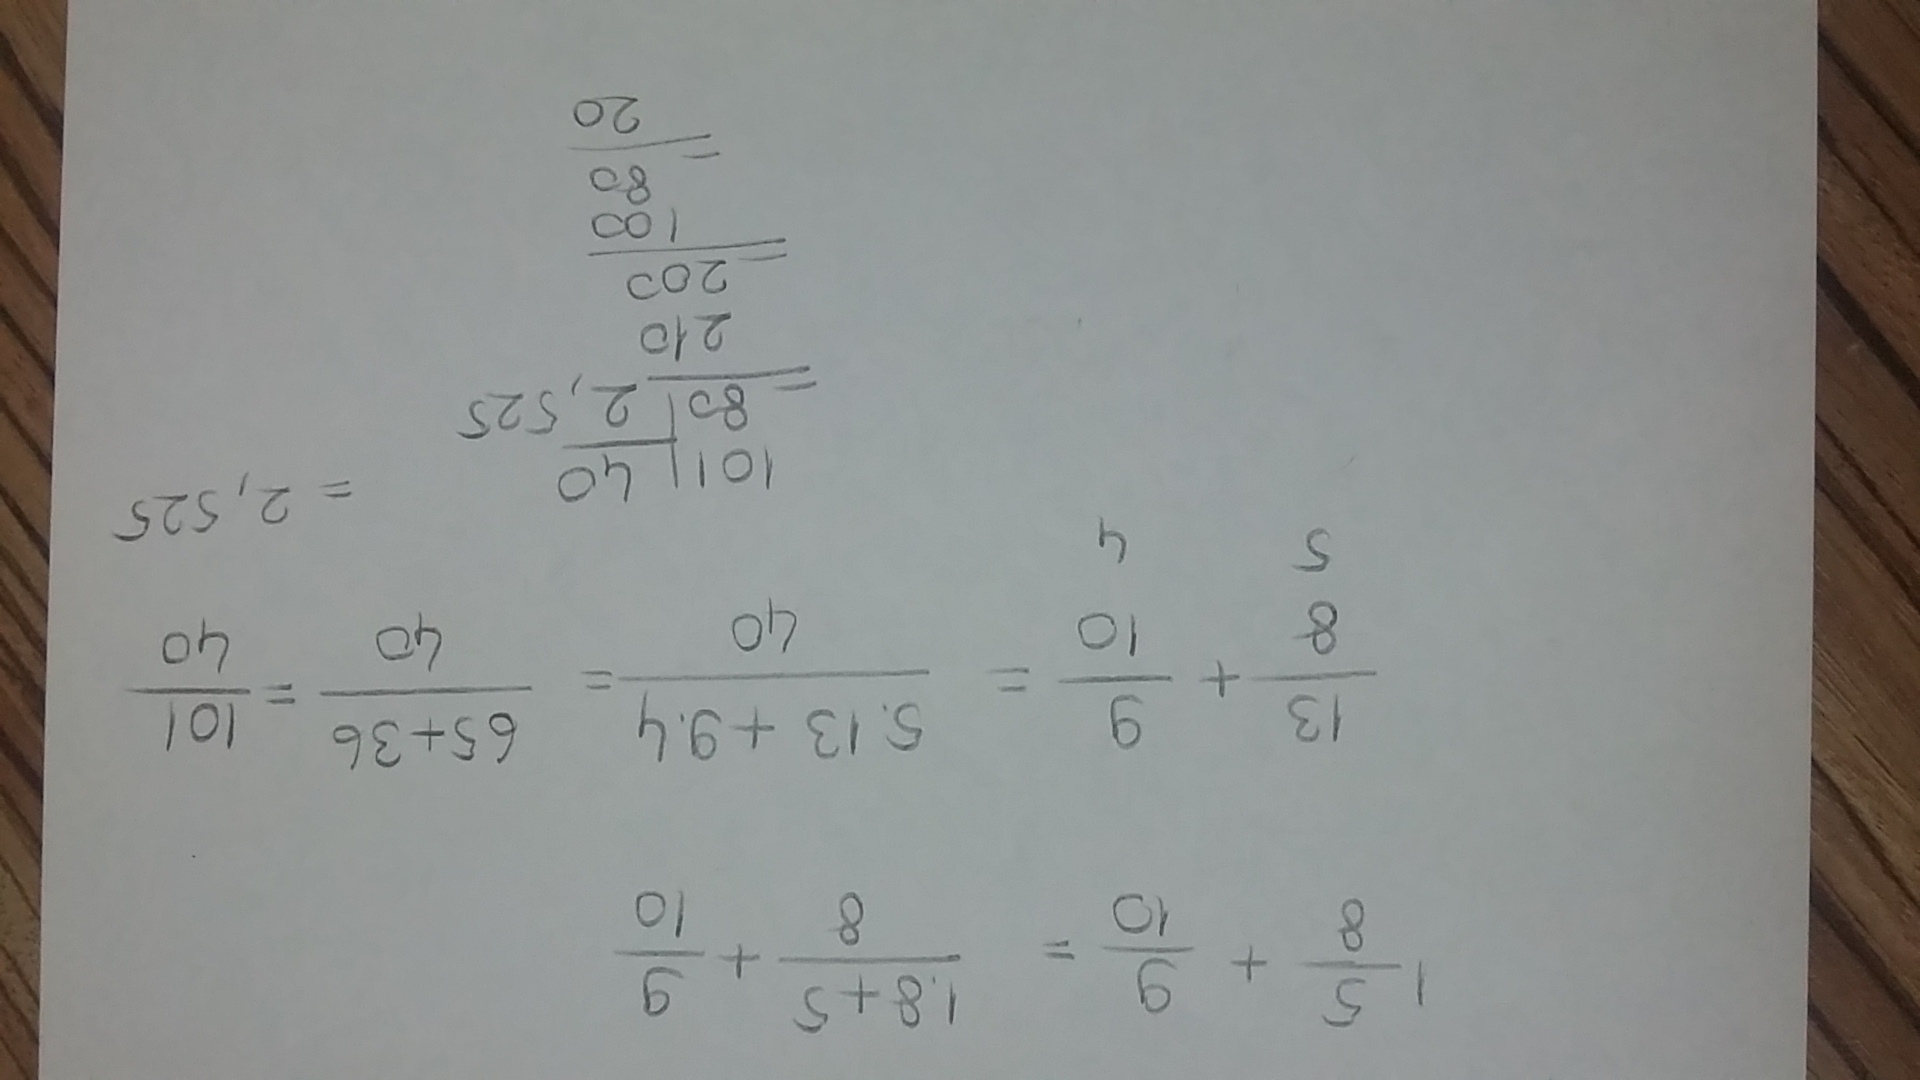 1 5/8 + 9/10 = 1.8+5/8 + 9/10
13/8 + 9/10 = 5.13 + 9.4/40 = 65+36/40 = 101/40
5 4
= 2,525
101 | 40
80 | 2,525
=
210
200
=
100
80
=
20